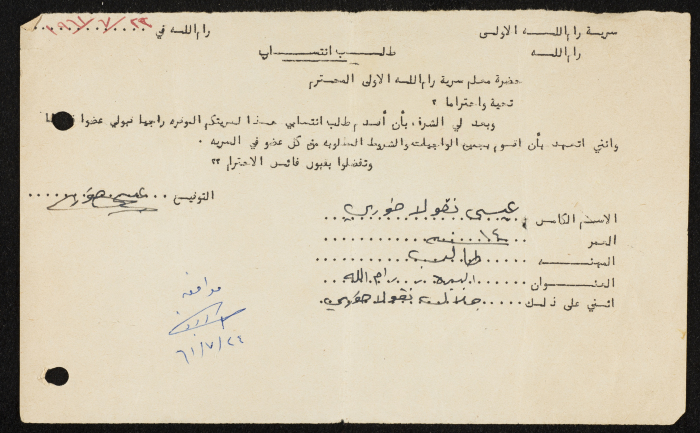 سرية رام اللـــه الاولى
رام اللـه في ٢٣/٧/١٩٦١
رام اللـه
طلــب انتســـاب
حضرة معلم سرية رام اللـه الاولى المحـترم
تحية واحتراما ؟
وبعد لي الشرف بأن أقدم طلب انتسابي هـذا لسريتكم الموقره راجيا قبولي عضوا
وانني اتعهد بأن اقوم بجميع الواجبات والشروط المطلوبه من كل عضو في السريه .
وتفضلوا بقبول فائق الاحترام ؟؟
التوقيـع
الاسـم الكامـل عيسى نقولا خوري
العمر ١٤ سنه
المهنـــه طالب
العنــوان رام الله
اثني على ذلـك نقولا خوري
موافقه
٦١/٧/٢٤